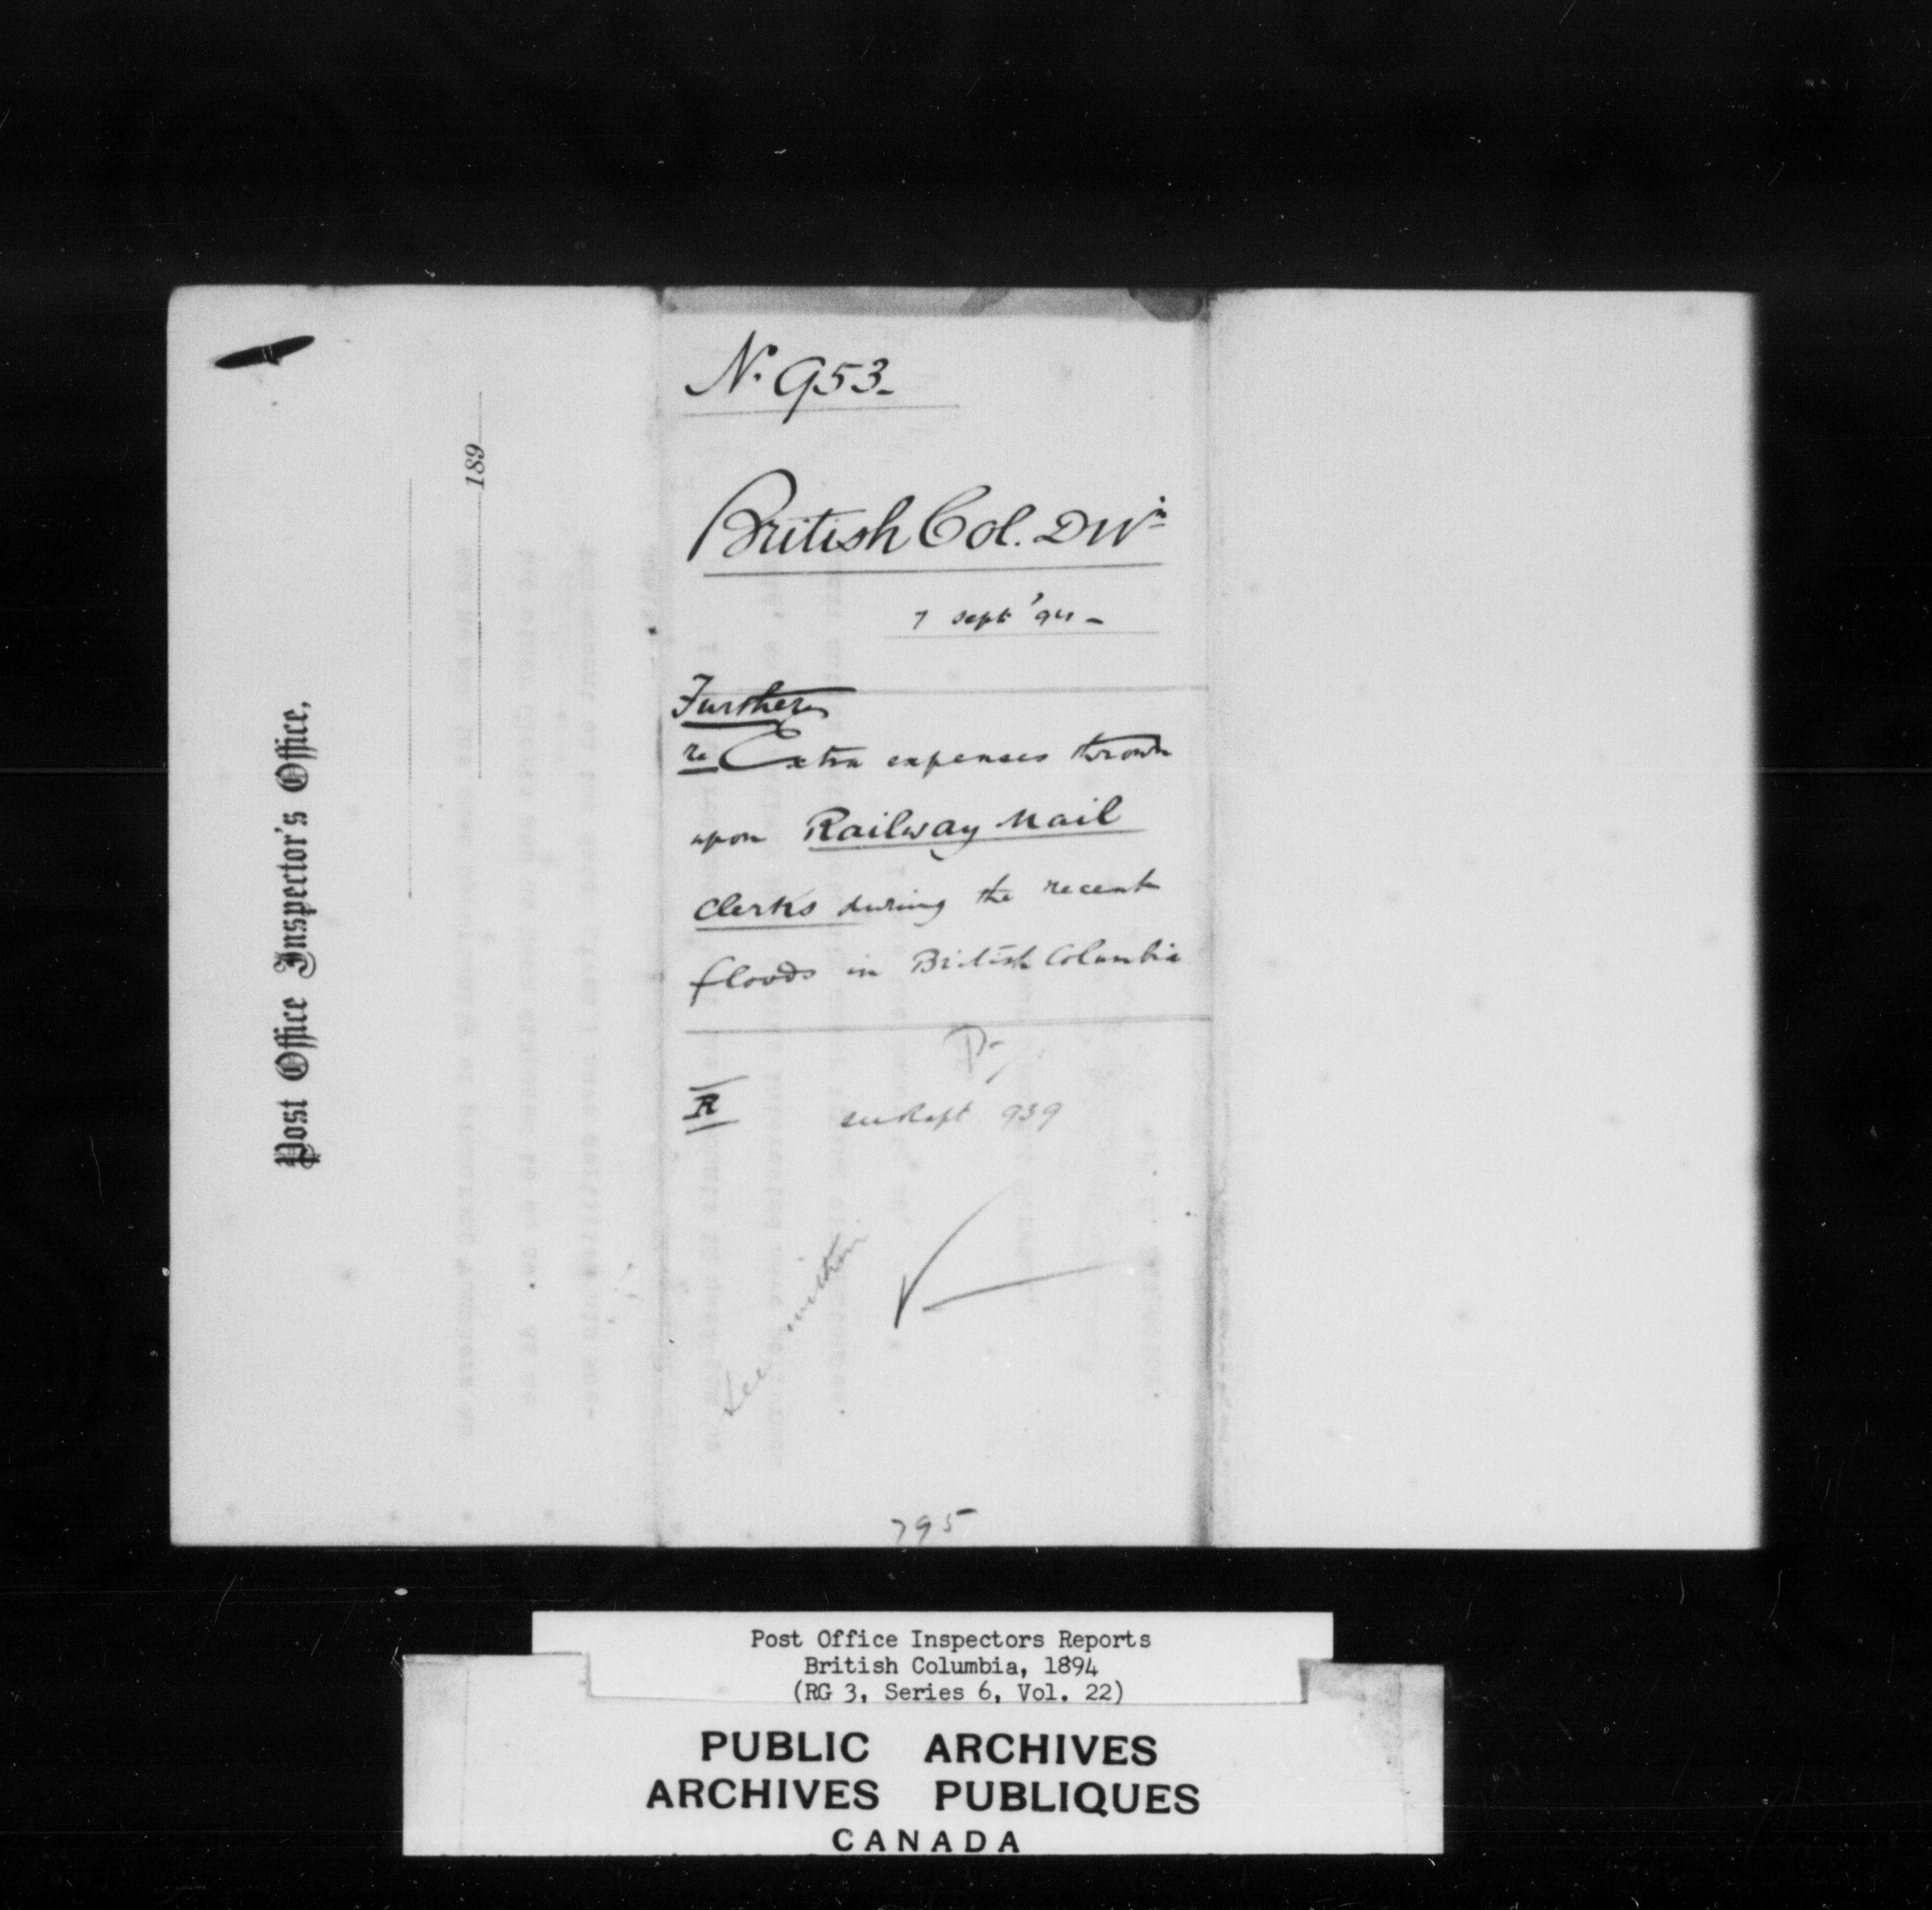 Post Office Inspector's Office,
189
No. 953.
British Col. Divn
7 Sept '94 -
Further
re Extra expenses thrown
upon Railway Mail
Clerks during the recent
floods in British Columbia
R
see Rept 939
See within
795
Post Office Inspectors Reports
British Columbia, 1894
(RG 3, Series 6, Vol. 22)
PUBLIC ARCHIVES
ARCHIVES PUBLIQUES
CANADA